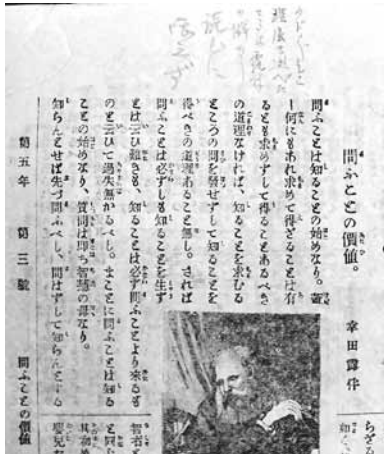 ちざる
問ふことの價値。
幸田露伴
問ふことは知ることの始めなり。蓋
し何にもあれ求めて得ざることは有
るとも求めずして得ることあるべき
の道理なければ、知ることを求むる
ところの問を發せずして知ることを
得べきの道理あること無し。されば
問ふことは必ずしも知ることを生ず
とは云ひ難きも、知ることは必ず問ふことより來るも
のと云ひて過失無かるべし。まことに問ふことは知る
ことの始めなり、質問は即ち智慧の母なり。
知らんとせば先づ問ふべし、問はずして知らんとする
智者と
と同
其初
嬰兒な
第五年 第三號 問ふことの價値